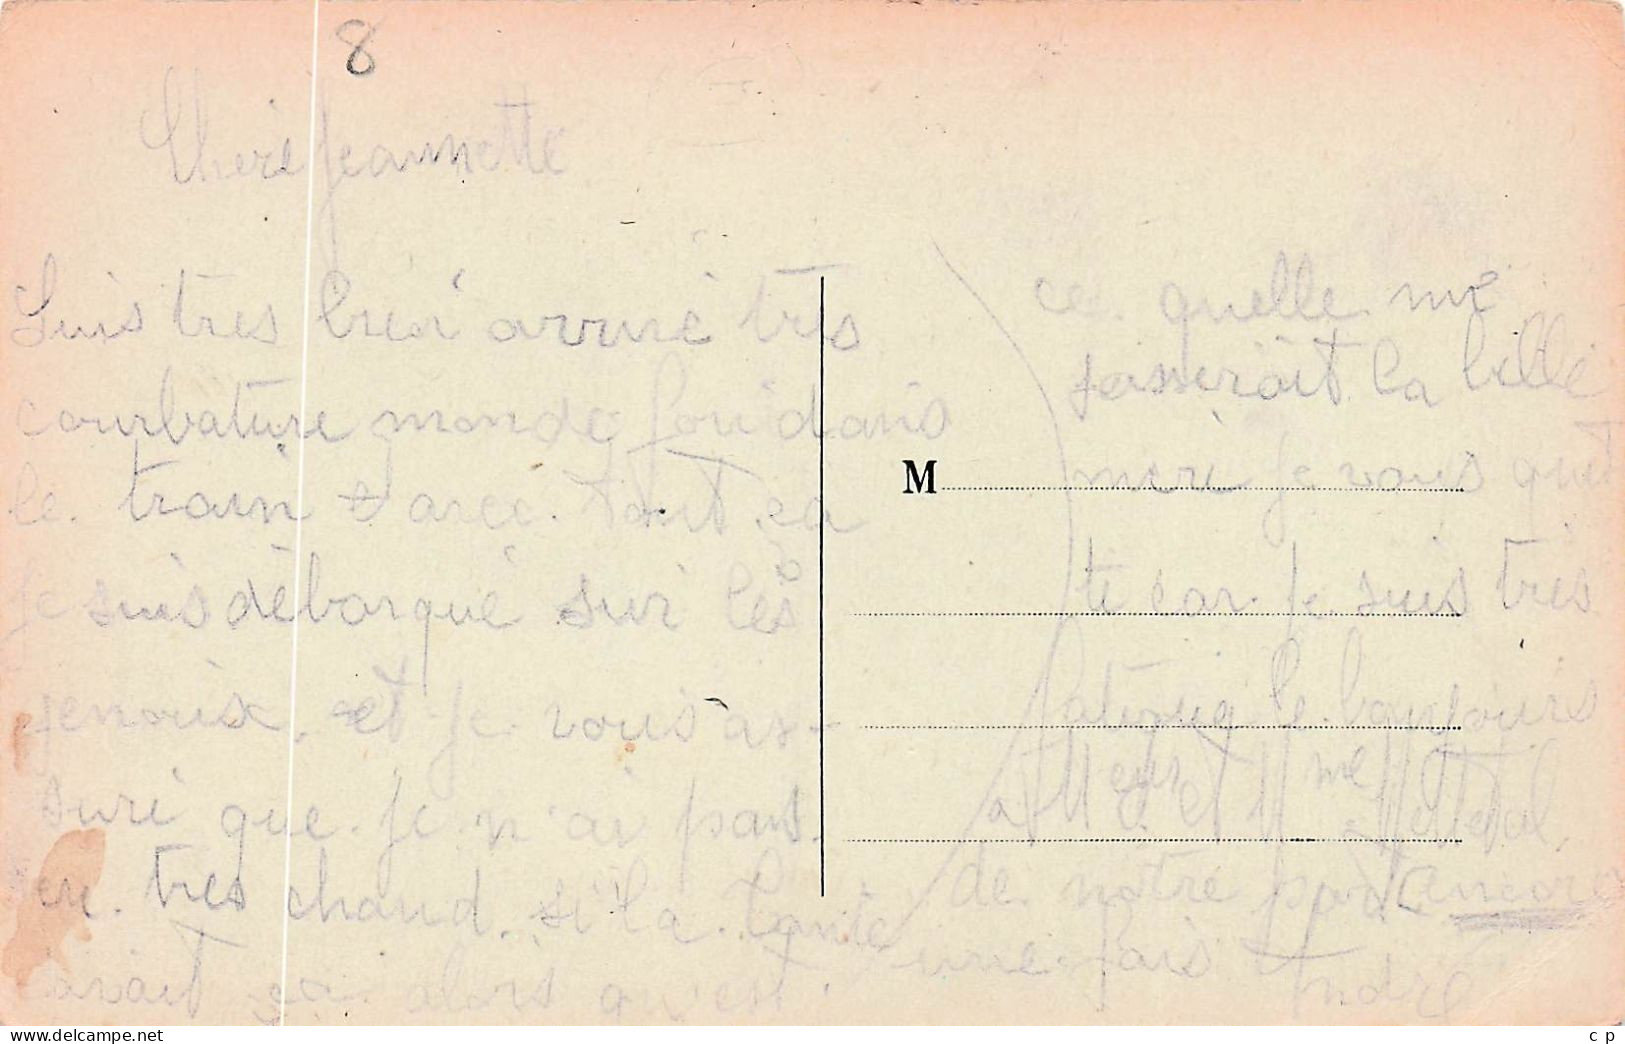 8
Cheré Jeannette
Suis tres bien arrivé trés
courbature monde fou dans
le train et avec tout ça
je suis débarqué sur les
jenoux. et je vous as-
suré que je n'ai pas
eu tres chaud. si la tante
avait ça alors qu'est
ce quelle me
passerait la belle
M
meré je vous quit
te car je suis très
fatigué le bonjours
a Mr et Mme
de notre part encore
une fois André
www.delcampe.net
c p